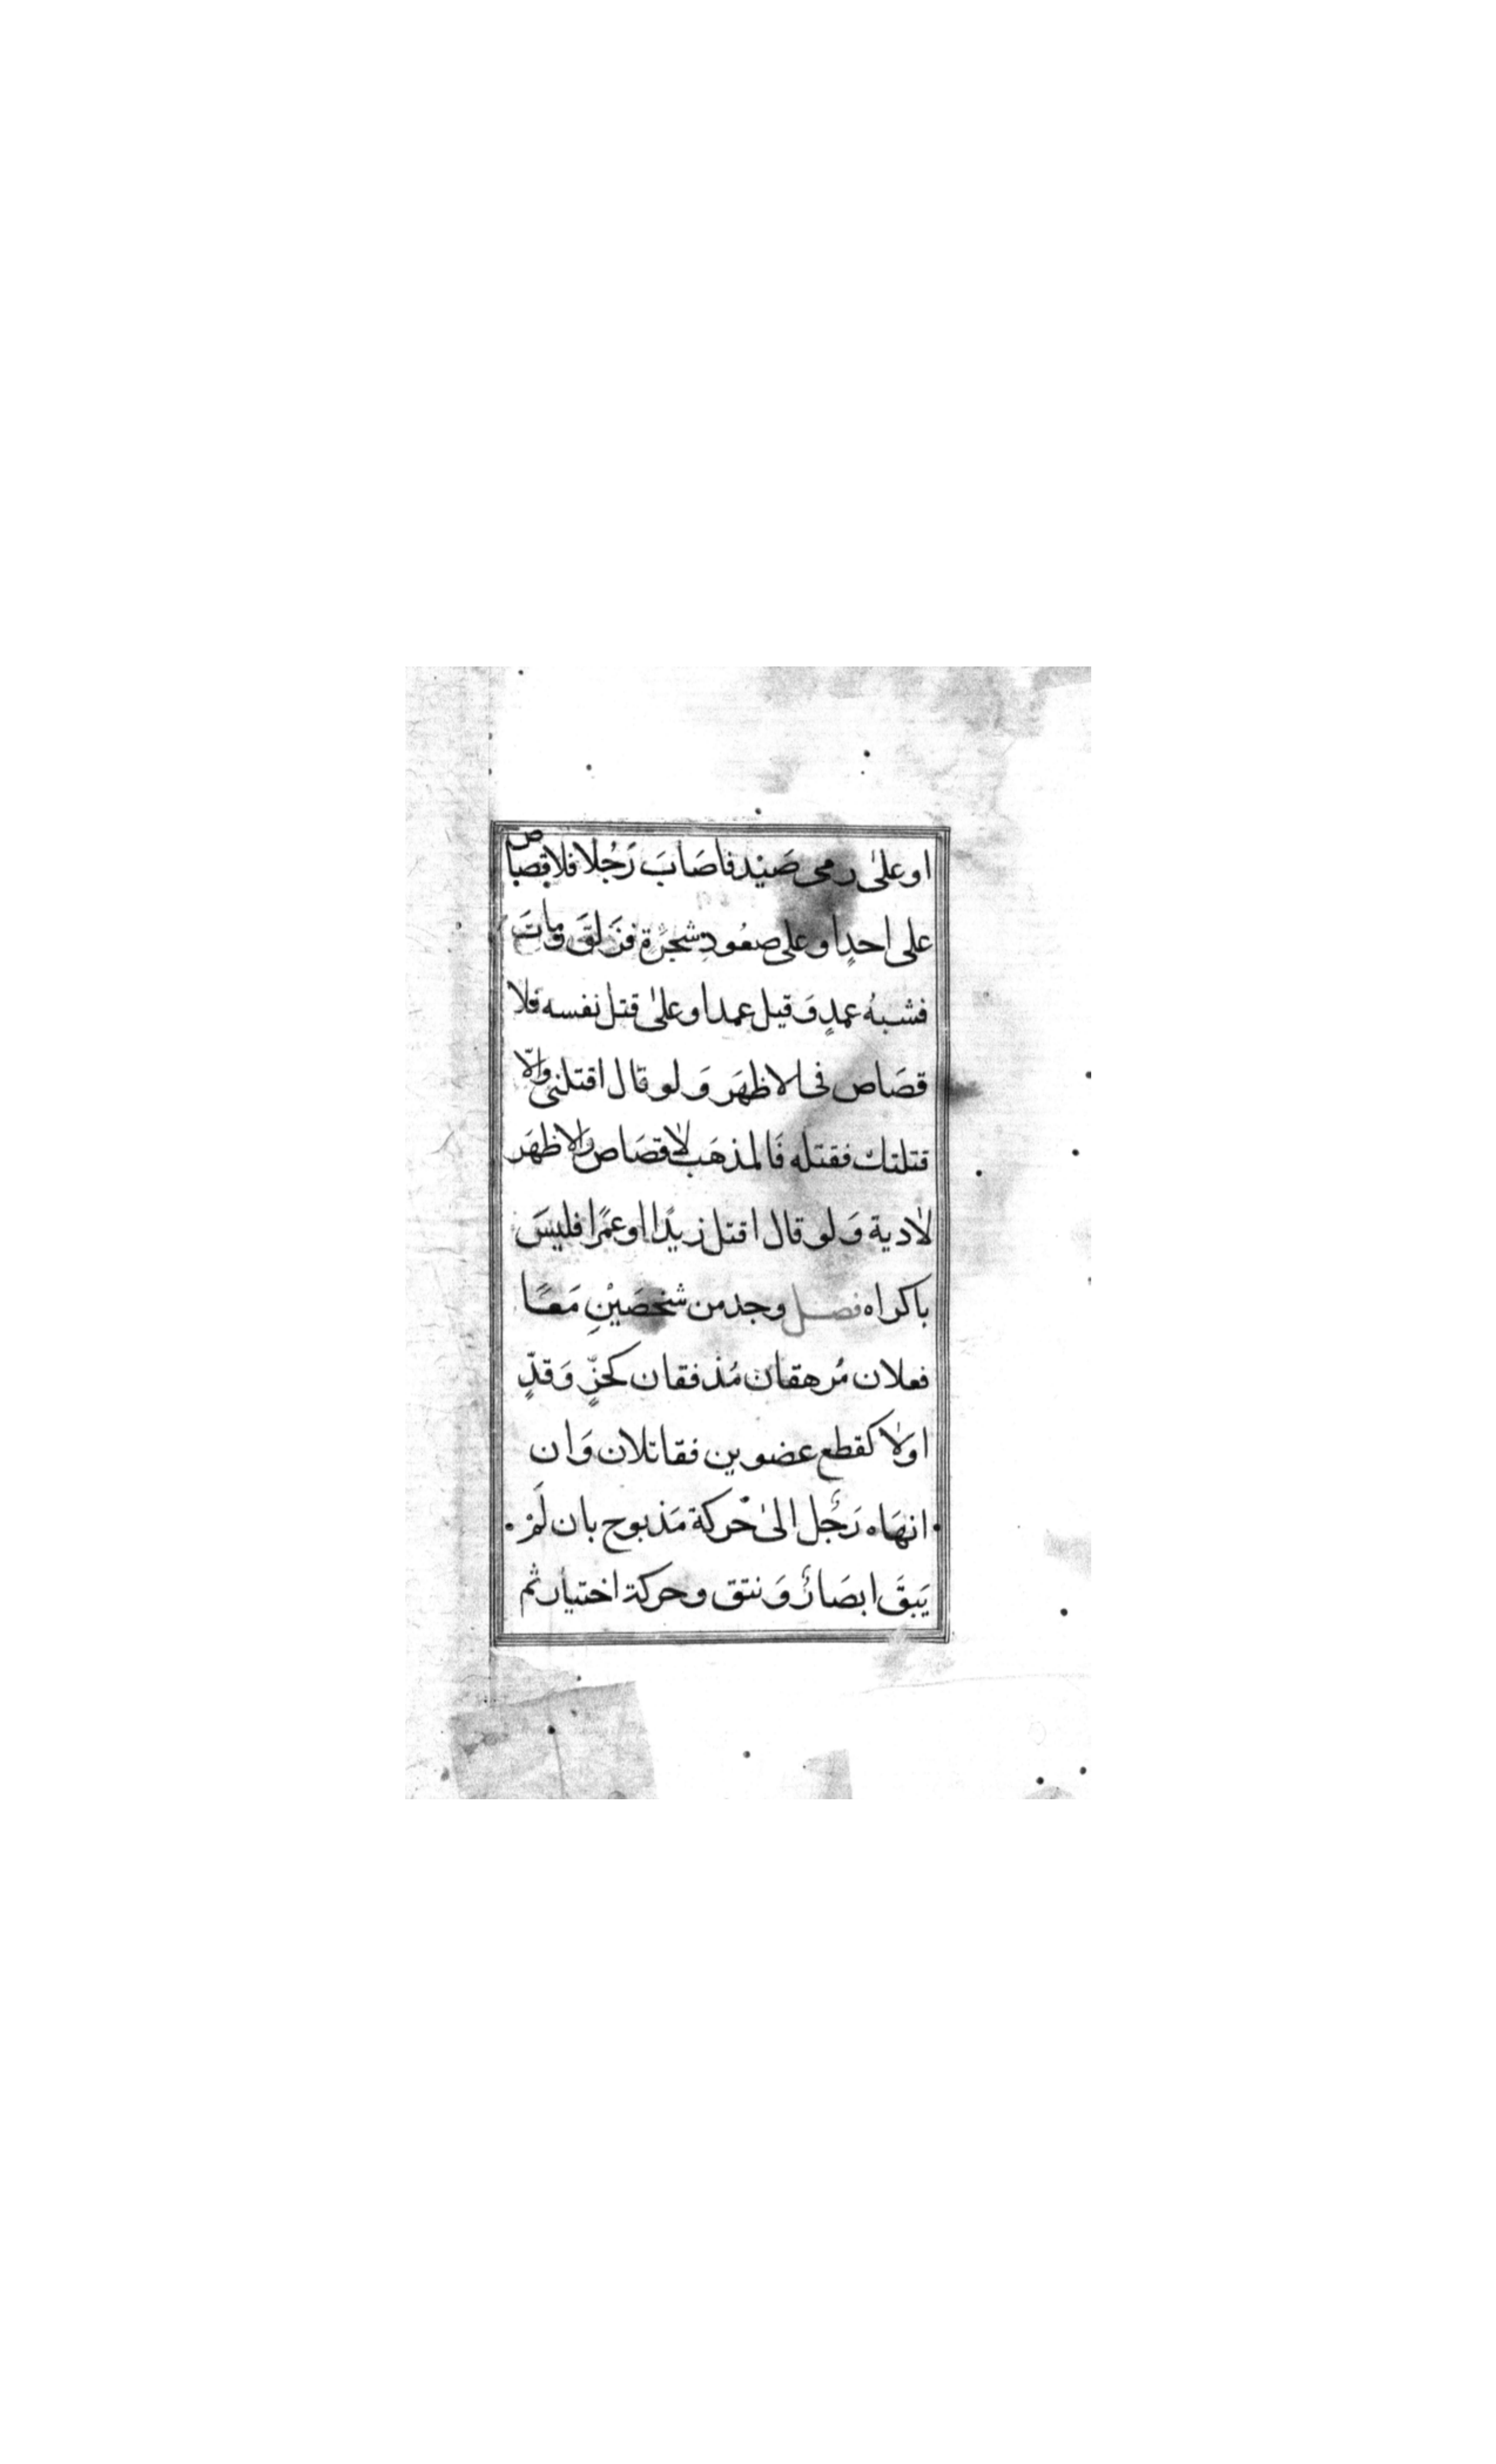 او علىٰ رمى صَيْد فاصَابَ رَجُلا فلا قصاص
على احدٍ او على صعُود شجَرَة فزَلقَ وماتَ
فشبهُ عمدٍ وَقيل عمد او علىٰ قتل نفسه فلا
قصَاص فى الاظهَر وَلو قال اقتلنى والّا
قتلتك فقتله فَالمذهَب لا قصَاص والاظهَر
لا دية وَلو قال اقتل زيدًا او عمرًا فليسَ
باكراه فصل وجد من شخصَيْنِ مَعًا
فعلان مُرهقان مُذففان كحزٍّ وَقدٍّ
اوَلا كقطع عضوين فقاتلان وَان
انهَاه رَجُل الىٰ حَركة مَذبوح بان لَمْ
يَبقَ ابصَارٌ وَنتق وحركة اختيار ثم